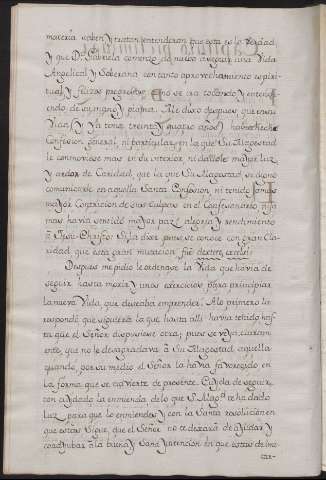 materia saben y tratan entenderan que esta es la verdad
y que D.ª Gabriela comenzò de nuevo a seguir una Vida
Angelical y Soberana con tanto aprovechamiento espiri-
tual y felizes progressos
endo de su mano y pluma. Me dixo despues que en su
Vida (y ya tenia treinta y quatro años) havia hecho
Confesion general, ni particular, en la que Su Magestad
le commoviese mas en su interior, ni da\dole mayor luz
y ardor de Caridad, que la que Su Magestad se dignò
comunicarle en aquella Santa Confesion, ni tenido jamas
mayor Contricion de sus Culpas en el Confesonario, ni ja
mas havia sentido mayor paz, alegria y rendimiento
a Jesu-Christo: Si la dixe, pues se conoce con gran Cla-
ridad que esta gran mutacion fue dextere excelsi.
Despues me pidio le ordenasse la Vida que havia de
seguir hasta morir y unos exercicios para principiar
la nueva Vida que deseaba emprender. A lo primero la
respondì que siguiera la que hasta alli havia tenido, has
ta que el Señor dispusiesse otra; pues se veia claramen
te, que no le desagradava à Su Magestad aquella
quando, por su medio el Señor la havia favorecido en
la forma que se advierte de presente. Cuidela de seguir,
con cuidado la enmienda de lo que S. Magd te ha dado
luz para que lo enmiendes y con la Santa resolucion en
que estas Sigue, que el Señor no te dexarà de ajudar y
coadjubar à la buena y Santa intencion en que estas de imi
tar-